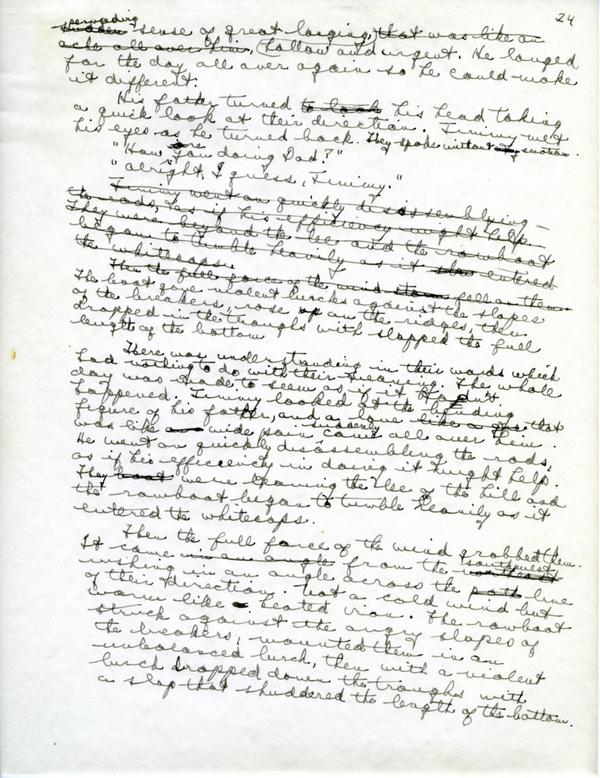 24
pervading
sudden sense of great longing, that was like an
ache all over him, hollow and urgent. He longed
for the day all over again so he could make
it different.
His father turned to look his head taking
a quick look at their direction. Timmy met
his eyes as he turned back. They spoke without any emotion.
"How are you doing Dad?"
"Alright, I guess, Timmy."
Timmy went on quickly disassembling
the rods, as if his efficiency might help.
They were beyond the lee and the rowboat
began to tumble heavily as it entered
the whitecaps.
Then the full force of the wind fell on them
The boat gave violent lurches against the slopes
of the breakers, rose up on the ridges, then
dropped in the troughs with slapped the full
length of the bottom
There was understanding in their words which
had nothing to do with their meaning. The whole
day was made to seem as if it hadn't
happened. Timmy looked at the bending
figure of his father, and a love like a that
was like a wide pain suddenly came all over him.
He went on quickly disassembling the rods,
as if his efficiency in doing it might help.
They boat were leaving the lee of the hill and
the rowboat began to tumble heavily as it
entered the whitecaps.
Then the full force of the wind grabbed them.
It came in an angle from the southwest
rushing in an angle across the path line
of their direction. Not a cold wind but
warm like heated iron. The rowboat
struck against the angry slopes of
the breakers, mounted them in an
unbalanced lurch, then with a violent
lurch dropped down the troughs with
a slap that shuddered the length of the bottom.